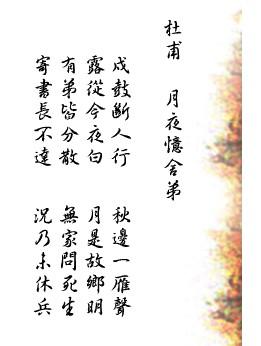 杜甫　月夜憶舍弟
戍鼓斷人行　秋邊一雁聲
露從今夜白　月是故鄉明
有弟皆分散　無家問死生
寄書長不達　況乃未休兵